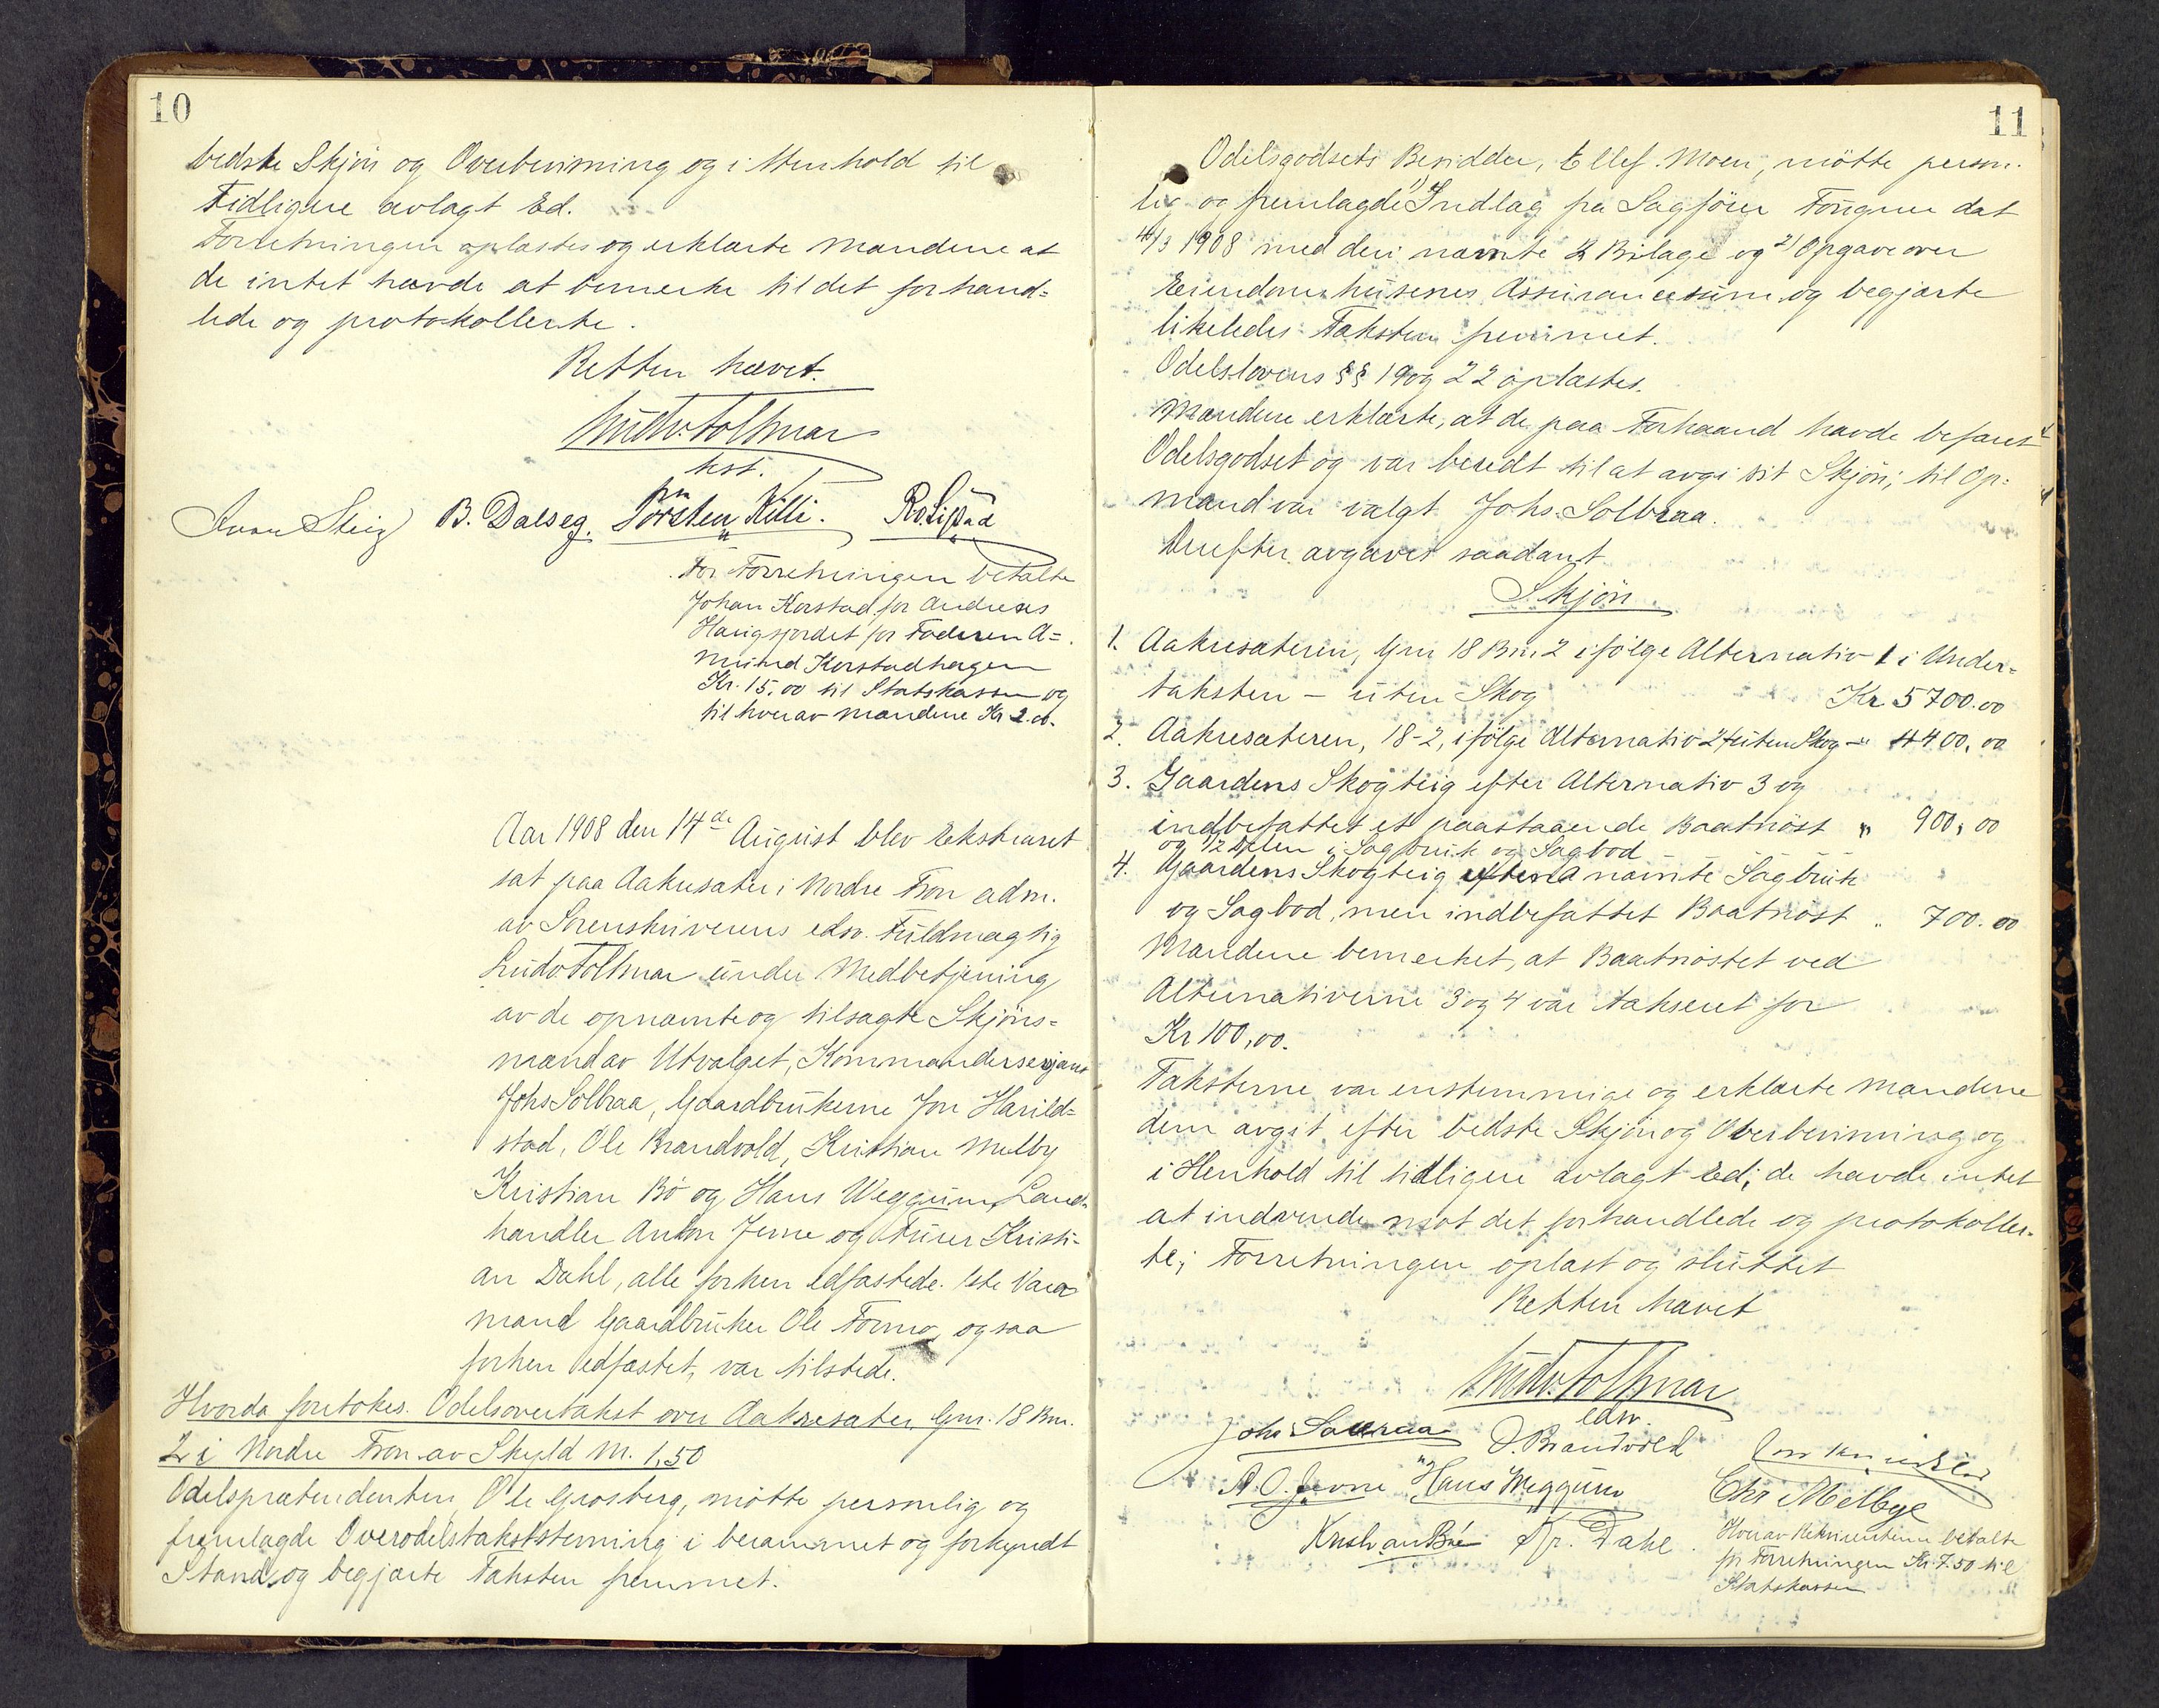 10
bedste Skjøn og Overbevisning og i Henhold til
Tidligere avlagt Ed.
Forretningen oplæstes og erklærte Mændene at
de intet havde at bemerke til det forhand-
lede og protokollerte.
Retten hævet.
Ludv. Tollnar
kst.
Ivar Steig B. Dalseg. Torsten Killi.
For Forretningen betalte
Johan Korstad for Andreas
Haugsjordet for Faderen A=
mund Korstadhagen
Kr. 15,00 til Statskassen og
til hver av Mændene Kr 2.00.
Aar 1908 den 14de August blev Ekstraret
sat paa Aakresæter i Nordre Fron adm.
av Sorenskriverens edsv. Fuldmægtig
Ludv Tollnar under Medbetjening
av de opnævnte og tilsagte Skjøns-
mænd av Utvalget, Kommandersergant
Johs Solbraa, Gaardbrukerne Jon Harild=
stad, Ole Brandvold, Kristian Melby
Kristian Bø og Hans Weggum, Land-
handler Anton Jevne og Furer Kristi-
an Dahl, alle forhen edfæstede. 1ste Vara
mand Gaardbruker Ole Formo, ogsaa
forhen edfæstet, var tilstede.
Hvorda foretokes. Odelsovertakst over Aakresæter Gnr. 18 Bnr.
2 i Nordre Fron av Skyld M. 1,50
Odelsprætendenten, Ole Grosberg, møtte personlig og
fremlagde Overodelstakststevning i berammet og forkyndt
Stand, og begjærte Taksten fremmet.
11
Odelsgodsets Besidder, Ellef Moen, møtte person-
lig og fremlagde 1) Indlæg fra Sagfører Fougner dat
4/3 1908 med deri nævnte 2 Bilage og 2) Opgave over
Eiendomshusenes Assurancesum og begjærte
likeledes Taksten fremmet.
Odelslovens §§ 19 og 22 oplæstes.
Mændene erklærte, at de paa Forhaand havde befaret
Odelsgodset og var beredt til at avgi sit Skjøn; til Op-
mand var valgt Johs. Solbraa.
Derefter avgaves saadant
Skjøn.
1. Aakresæteren, Gnr 18 Bnr. 2 ifølge Alternativ 1 i Under-
taksten – uten Skog Kr 5700.00
2. Aakresæteren, 18-2, ifølge Alternativ 2 uten Skog – 4400,00
3. Gaardens Skogteig efter Alternativ 3 og
indbefattet et paastaaende Baatnøst " 900,00
og 1/2 Delen i Sagbruk og Sagbod
4. Gaardens Skogteig nævnte Sagbruk
og Sagbod, men indbefattet Baatnøst " 700.00
Mændene bemerket, at Baatnøstet ved
Alternativerne 3 og 4 var takseret for
Kr 100,00.
Taksterne var enstemmige og erklærte Mændene
dem avgit efter bedste Skjøn og Overbevisning og
i Henhold til tidligere avlagt Ed; de havde intet
at indvende mot det forhandlede og protokoller-
te; Forretningen oplæst og sluttet
Retten hævet
Ludv. Tollnar
edsv.
Johs Solbraa O. Brandvold
A. O. Jevne Hans Weggum Chr Melbye
Kristian Bø Kr. Dahl.
Hver av Rekvirenterne betalte
for Forretningen Kr. 7.50 til
Statskassen